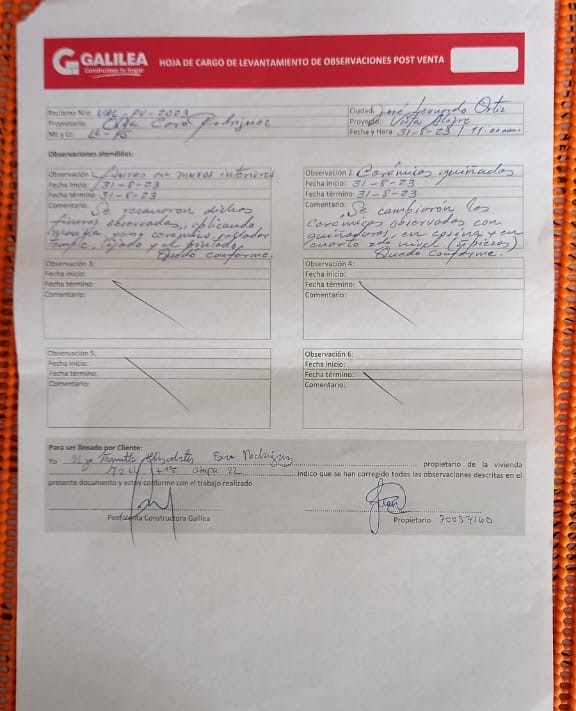 GALILEA
Construimos tu hogar
HOJA DE CARGO DE LEVANTAMIENTO DE OBSERVACIONES POST VENTA
Reclamo Nro: PV - 2023
Ciudad: José Leonardo Ortiz
Propietario: Caro Rodriguez
Proyecto: Vista Alegre
Mz y Lt:
Fecha y Hora: 31-5-23 / 11:00 am
Observaciones atendidas:
Observación 1: fisuras en muros interiores
Fecha inicio: 31-5-23
Fecha término: 31-5-23
Comentario: Se resanaron dichas
fisuras observadas, aplicando
yeso cerámico, sellador
temple, lijado y el pintado.
Quedo conforme.
Observación 2: Cerámicos guiñados
Fecha inicio: 31-5-23
Fecha término: 31-5-23
Comentario: Se cambiarón los
Cerámicos observados con
guiñaduras, en cocina y en
cuarto 2do nivel. (5 piezas)
Quedo Conforme.
Observación 3:
Fecha inicio:
Fecha término:
Comentario:
Observación 4:
Fecha inicio:
Fecha término:
Comentario:
Observación 5:
Fecha inicio:
Fecha término:
Comentario:
Observación 6:
Fecha inicio:
Fecha término:
Comentario:
Para ser llenado por Cliente:
Yo Elizabeth Caro Rodriguez propietario de la vivienda
etapa indico que se han corregido todas las observaciones descritas en el
presente documento y estoy conforme con el trabajo realizado.
Post Venta Constructora Galilea
Propietario